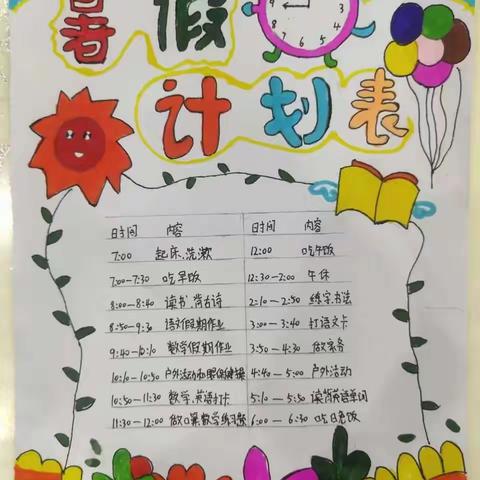 暑假
计划表
时间 内容 时间 内容
7:00 起床、洗漱 12:00 吃午饭
7:00-7:30 吃早饭 12:30-2:00 午休
8:00-8:40 读书、背古诗 2:10-2:50 练字、书法
8:50-9:30 语文假期作业 3:00-3:40 打语文卡
9:40-10:10 数学假期作业 3:50-4:30 做家务
10:10-10:50 户外活动和眼保健操 4:40-5:00 户外活动
10:50-11:30 数学、英语打卡 5:10-5:50 读背英语单词
11:30-12:00 做口算数学练习题 6:00-6:30 吃晚饭